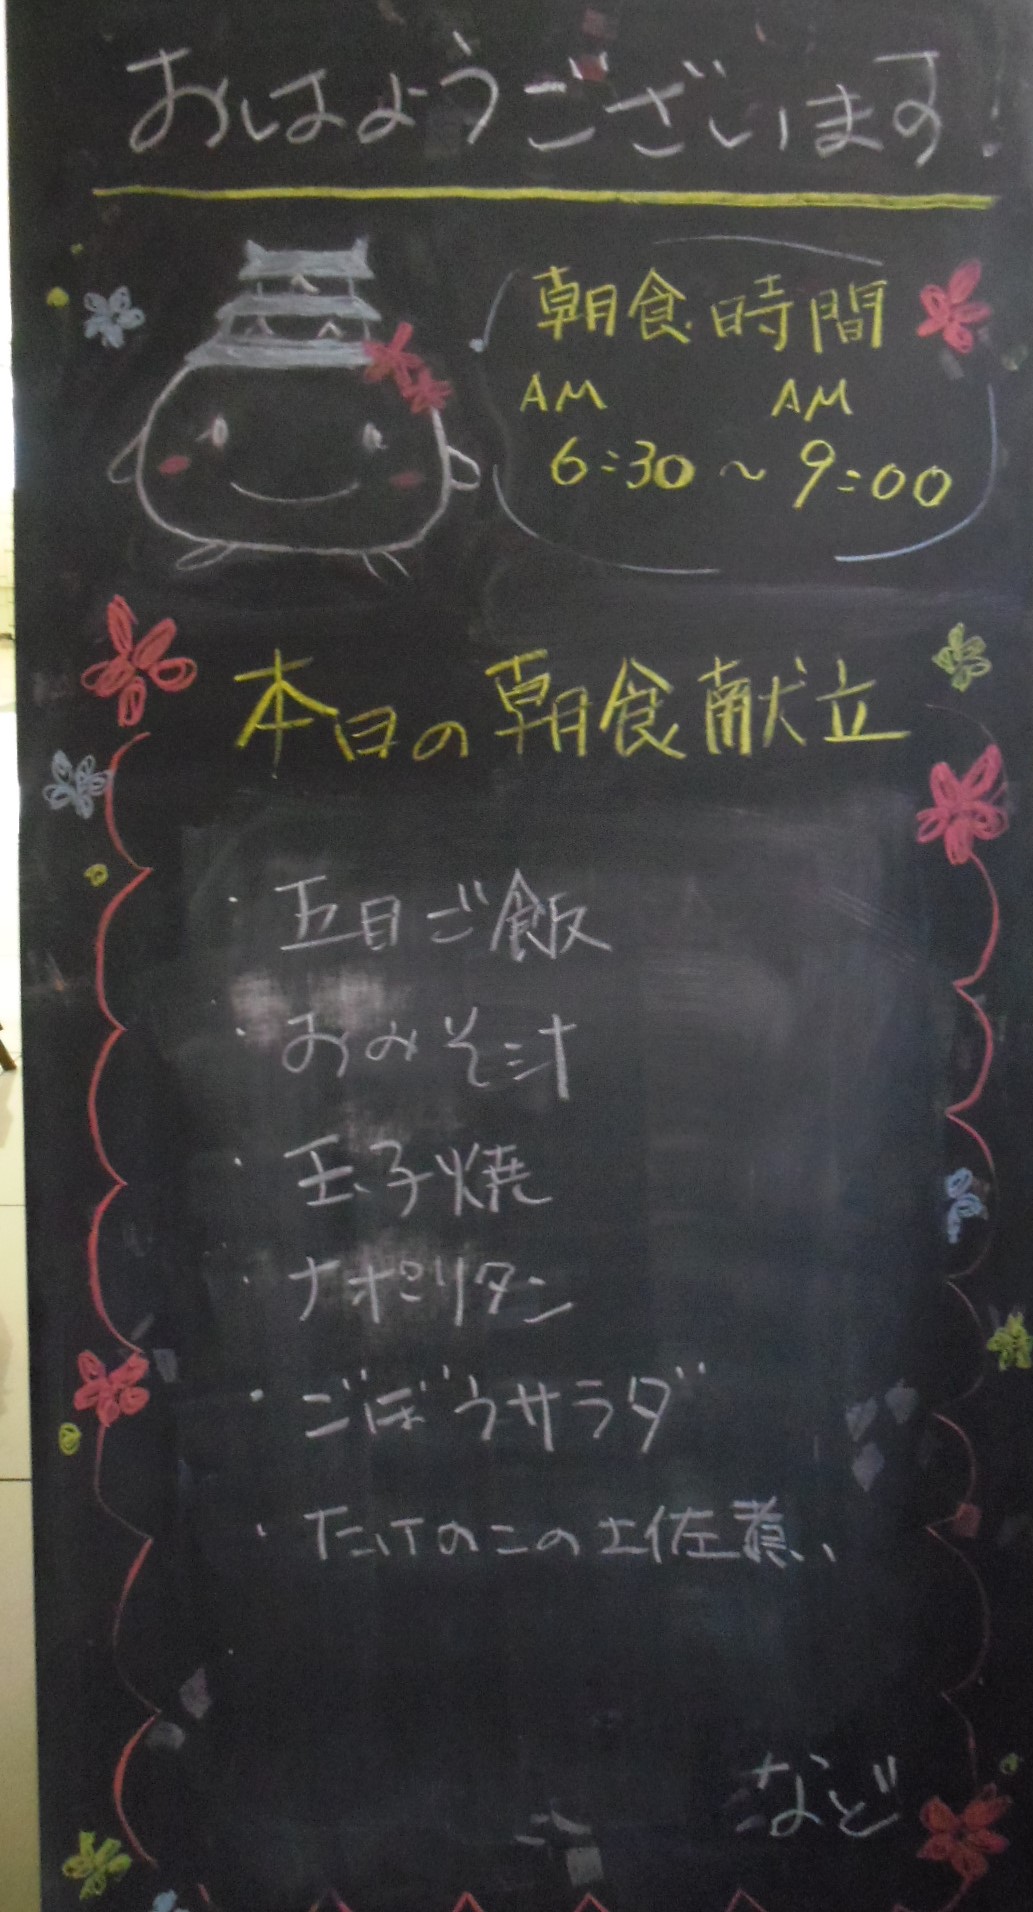 おはようございます!
朝食時間
AM AM
6:30～9:00
本日の朝食献立
・五目ご飯
・おみそ汁
・玉子焼
・ナポリタン
・ごぼうサラダ
・たけのこの土佐煮
など